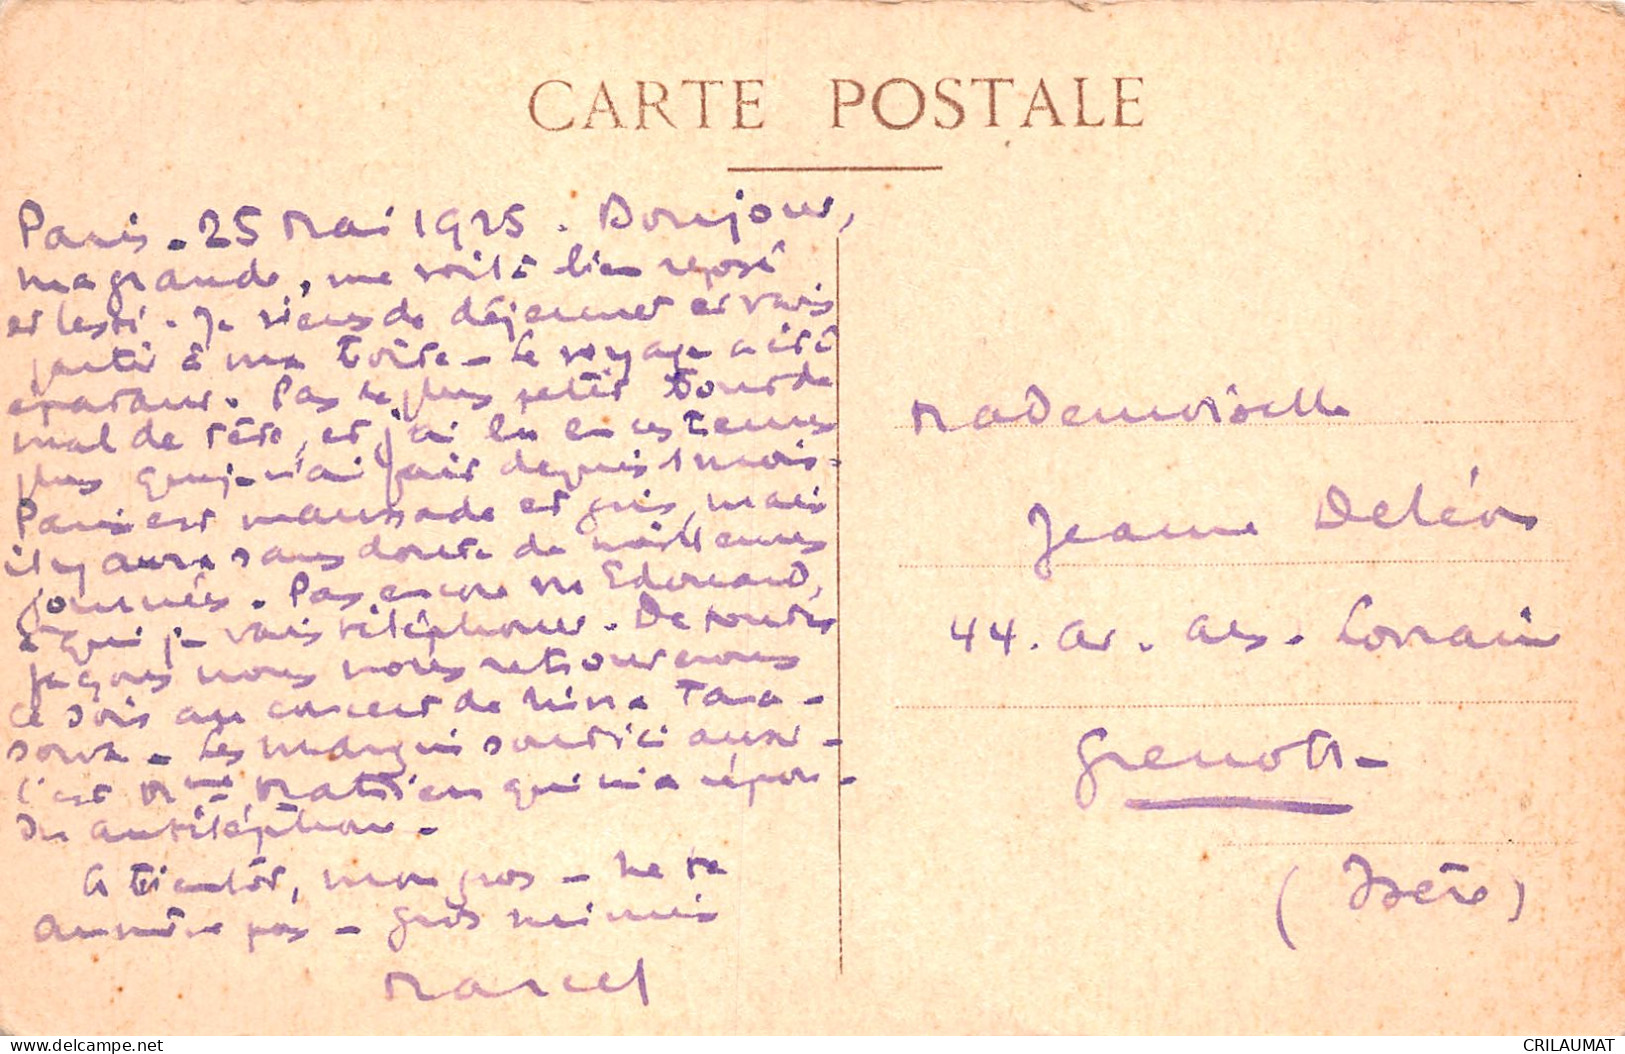 CARTE POSTALE
Paris - 25 Mai 1925. Bonjour,
ma grande, me voilà bien reposé
et lesté. Je viens de déjeuner et vais
partir à ma . Le voyage a été
. Pas le plus petit tour de
mal de tête, et j'ai lu en ce temps
plus que je n'ai fait depuis 1 mois.
Paris est maussade et gris, mais
il y aura sans doute de meilleures
journées. Pas encore vu Edouard,
à qui je vais téléphoner. De toutes
façons nous nous retrouverons
ce soir au concert de Nina Tara-
sova. Les sont ici aussi -
C'est Mme qui m'a répon-
du au téléphone -
A bientôt, mon gros - Ne te
pas - Gros mimis
Marcel
Mademoiselle
Jeanne Deléon
44. av. Als. Lorraine
Grenoble
(Isère)
delcampe.net
CRILAUMAT